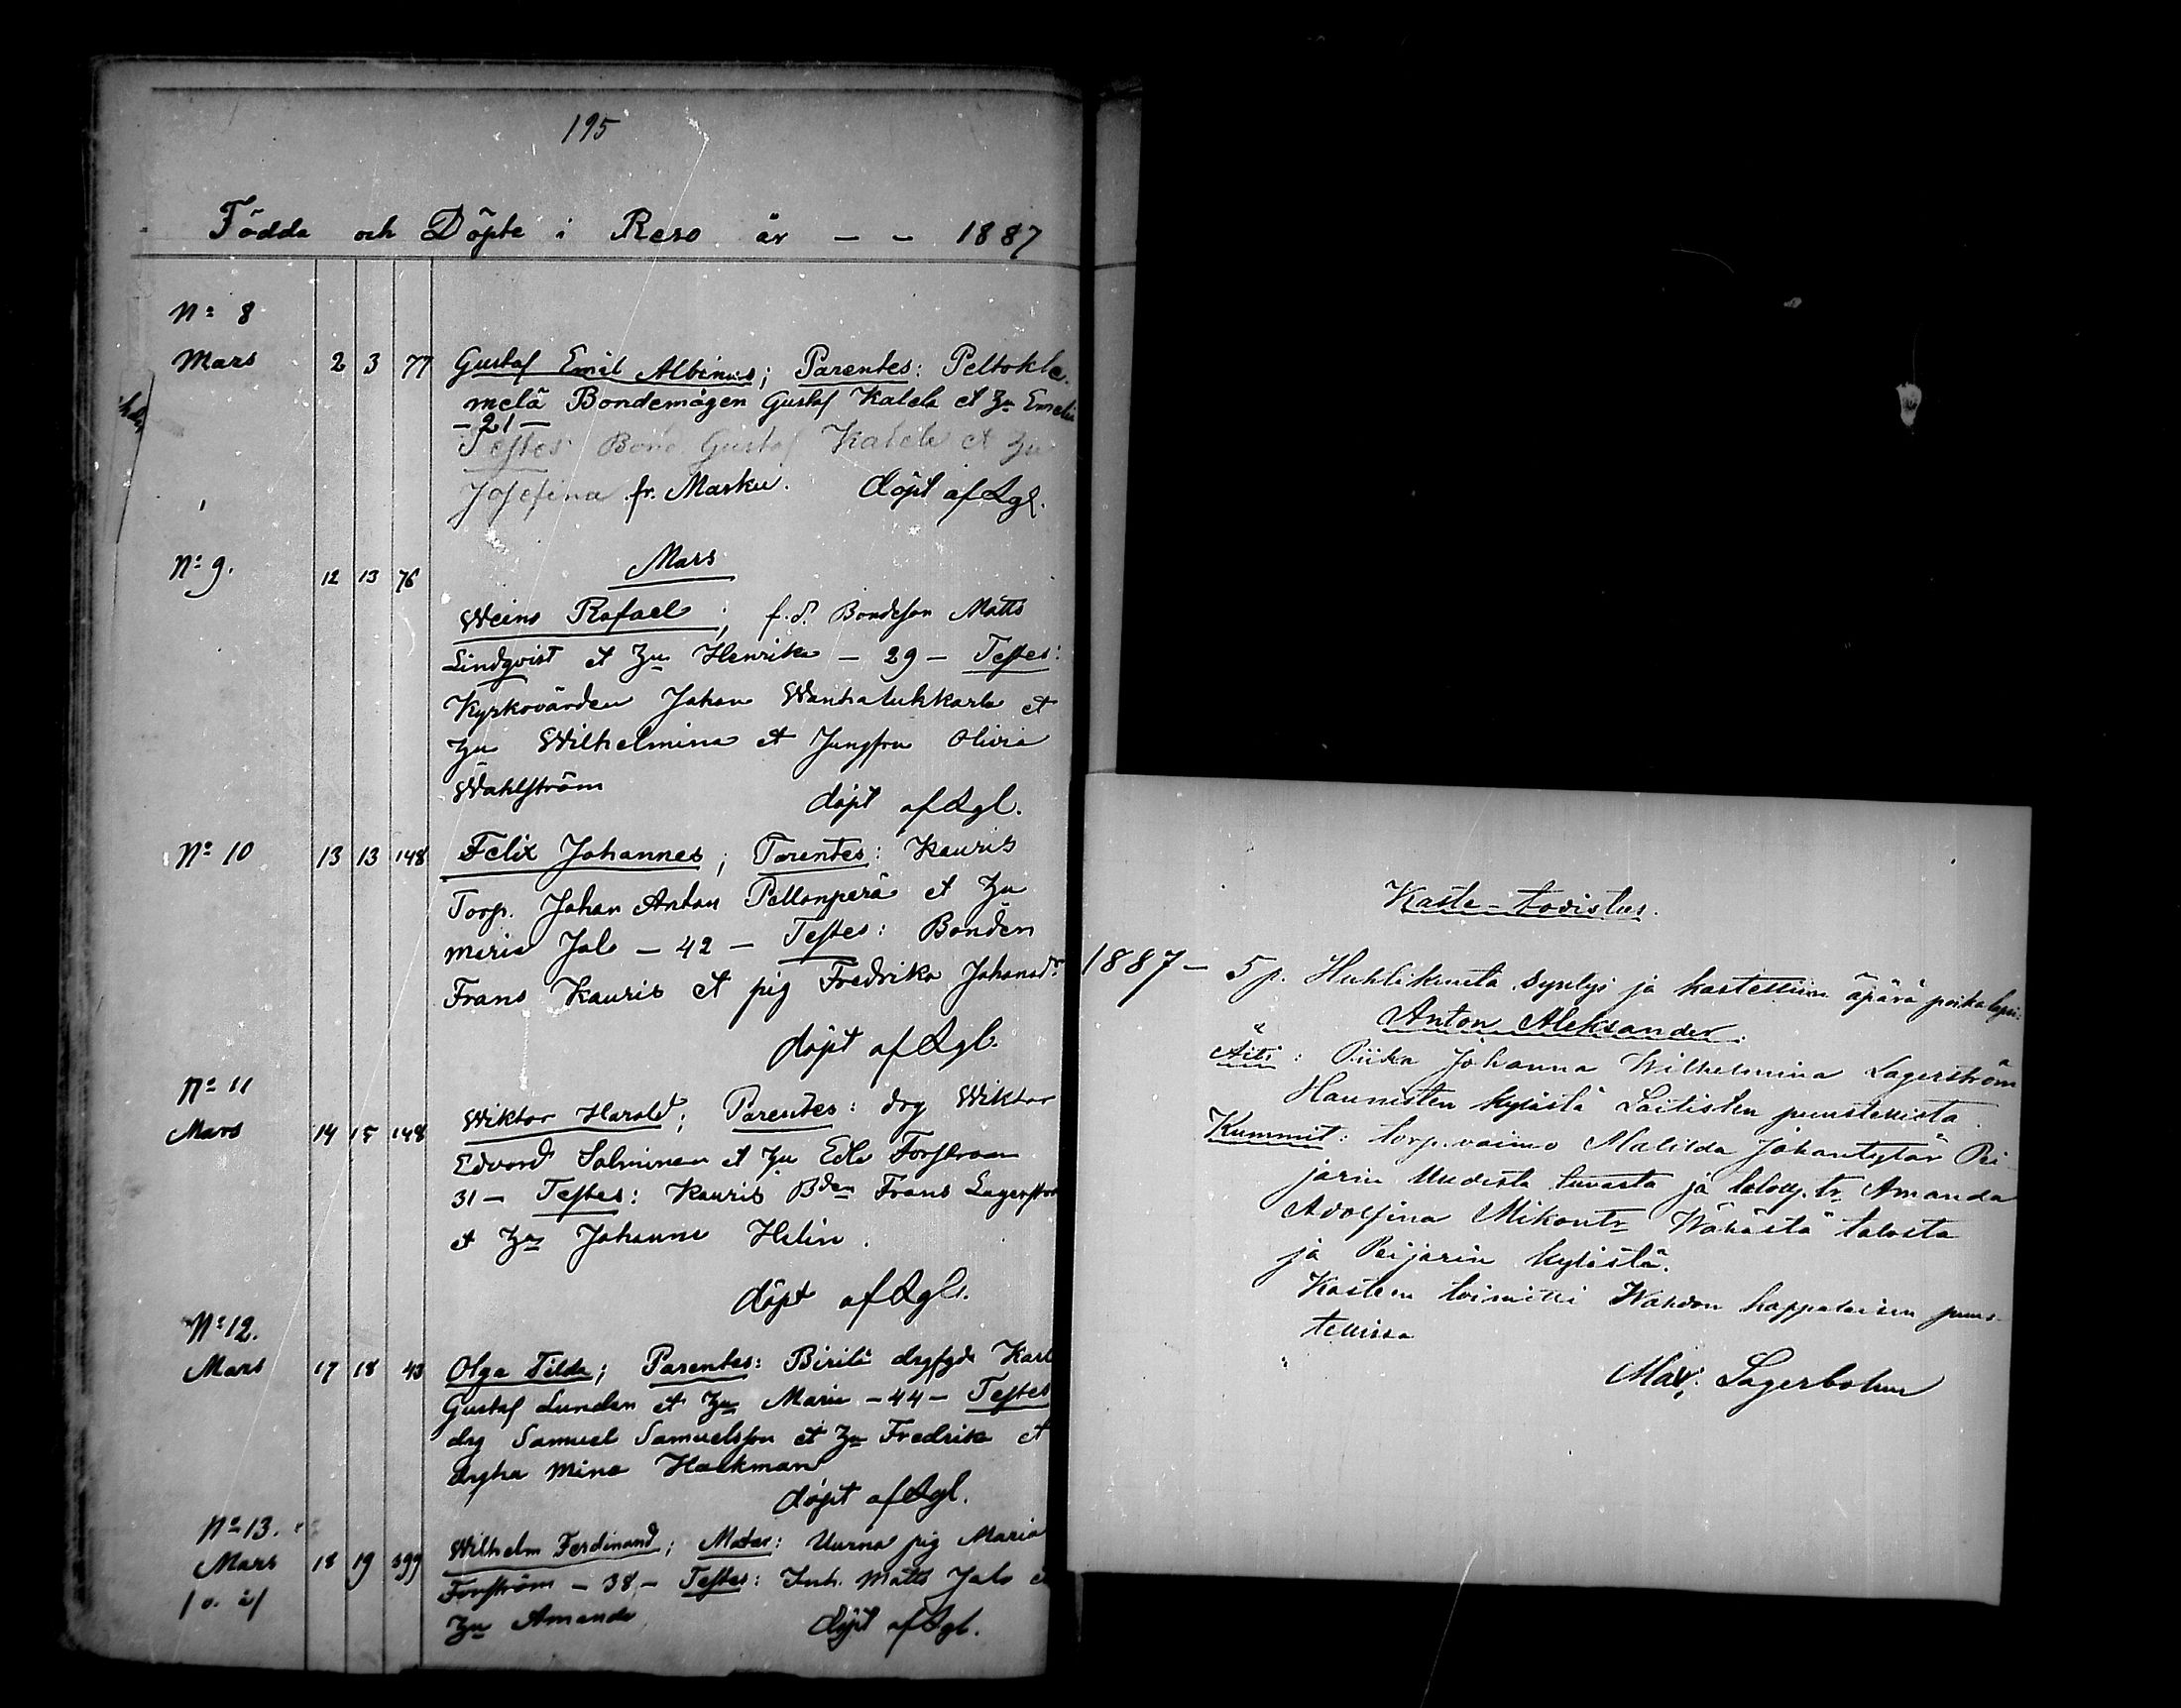 195
Födda och Döpte i Reso år — — 1887
No 8
Mars 2 3 77 Gustaf Emil Albinus; Parentes: Peltokle-
melä Bondemågen Gustaf Katela et Hu Emelie
—21—
Testes: Bond. Gustaf Katela et Hu
Josefina fr. Masku. döpt af Lgl.
No 9. 12 13 76 Mars
Weino Rafael; f.d. Bondeson Matts
Lindqvist et Hu Henrika — 29 — Testes:
Kyrkovärden Johan Wanhatukkarla et
Hu Wilhelmina et Jungfru Olivia
Wahlström
döpt af Lgl.
No 10 13 13 148 Felix Johannes; Parentes: Kauris
Torp. Johan Anton Pellonperä et Hu
Maria Jalo — 42 — Testes: Bonden
Frans Kauris et pig Fredrika Johansdr
döpt af Lgl.
No 11
Mars 14 15 148 Wiktor Harald; Parentes: drg Wiktor
Edvard Salminen et Hu Edla Forsström
31 — Testes: Kauris Bden Frans Lagerström
et Hu Johanna Helin.
döpt af Lgl.
No 12.
Mars 17 18 43 Olga Tilda; Parentes: Birilä Karl
Gustaf Lunden et Hu Maria — 44 — Testes
drg Samuel Samuelsson et Hu Fredrika et
Mina Hackman
döpt af Lgl.
No 13.
Mars 18 19 399 Wilhelm Ferdinand; Mater: Uurna pig Maria
Forsström — 38 — Testes: Inh. Matts Jalo et
/o. ä/ Hu Amanda döpt af Lgl.
Kaste-todistus.
1887 — 5 p. Huhtikuuta syntyi ja kastettiin äpärä poikalapsi:
Anton Aleksander.
Äiti: Piika Johanna Wilhelmina Lagerström
Haunisten kylästä Laitisten puustellista.
Kummit: torp. vaimo Matilda Johantytär Pei-
jarin Uudesta tuvasta ja talolj. tr Amanda
Adolfina Mikontr Wähästä talosta
ja Peijarin kylästä.
Kasteen toimitti Wahdon kappalaisen puus-
tellissa
Max. Lagerbohm